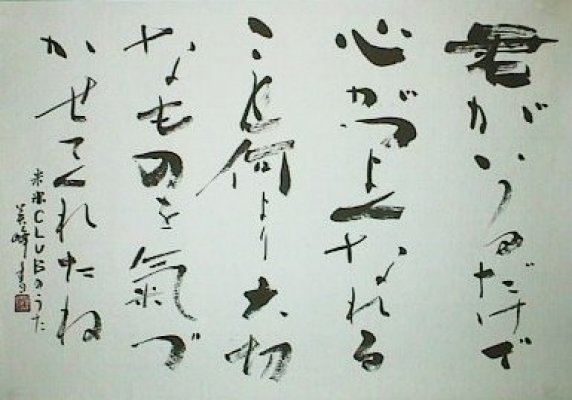 君がいるだけで
心がつよくなれる
こと何より大切
なものを氣づ
かせてくれたね
米米CLUBのうた
英峰書